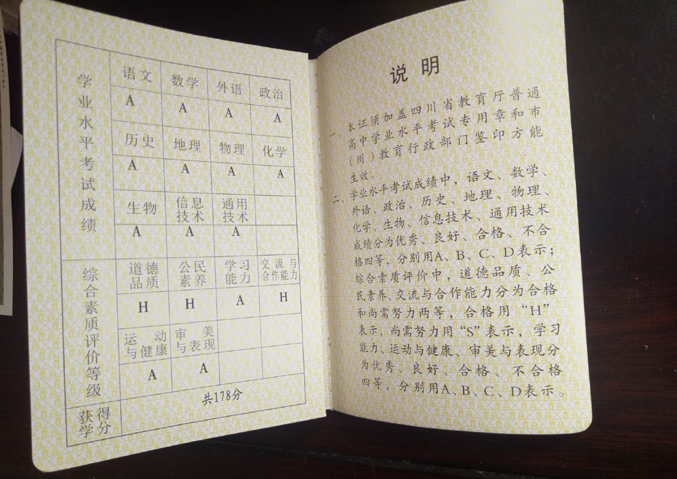 学业水平考试成绩
语文 数学 外语 政治
A A A A
历史 地理 物理 化学
A A A A
生物 信息技术 通用技术
A A A
综合素质评价等级
道德品质 公民素养 学习能力 交流与合作能力
H H A H
运动与健康 审美与表现
A A
获得学分
共178分
说明
一、本证须加盖四川省教育厅普通
高中学业水平考试专用章和市
(州)教育行政部门鉴印方能
生效。
二、学业水平考试成绩中,语文、数学、
外语、政治、历史、地理、物理、
化学、生物、信息技术、通用技术
成绩分为优秀、良好、合格、不合
格四等,分别用A、B、C、D表示;
综合素质评价中,道德品质、公
民素养、交流与合作能力分为合格
和尚需努力两等,合格用“H”
表示,尚需努力用“S”表示,学习
能力、运动与健康、审美与表现分
为优秀、良好、合格、不合格
四等,分别用A、B、C、D表示。